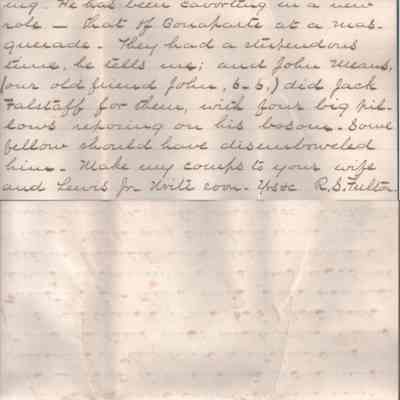 ing. He has been cavorting in a new
role — that of Bonaparte at a mas-
querade. They had a stupendous
time, he tells me; and John Means,
(our old friend John, 6-5,) did Jack
Falstaff for them, with four big pil-
lows reposing on his bosom. Some
fellow should have disemboweled
him. Make my comps to your wife
and Lewis Jr. Write soon. Yrs &c R.S. Fulton.